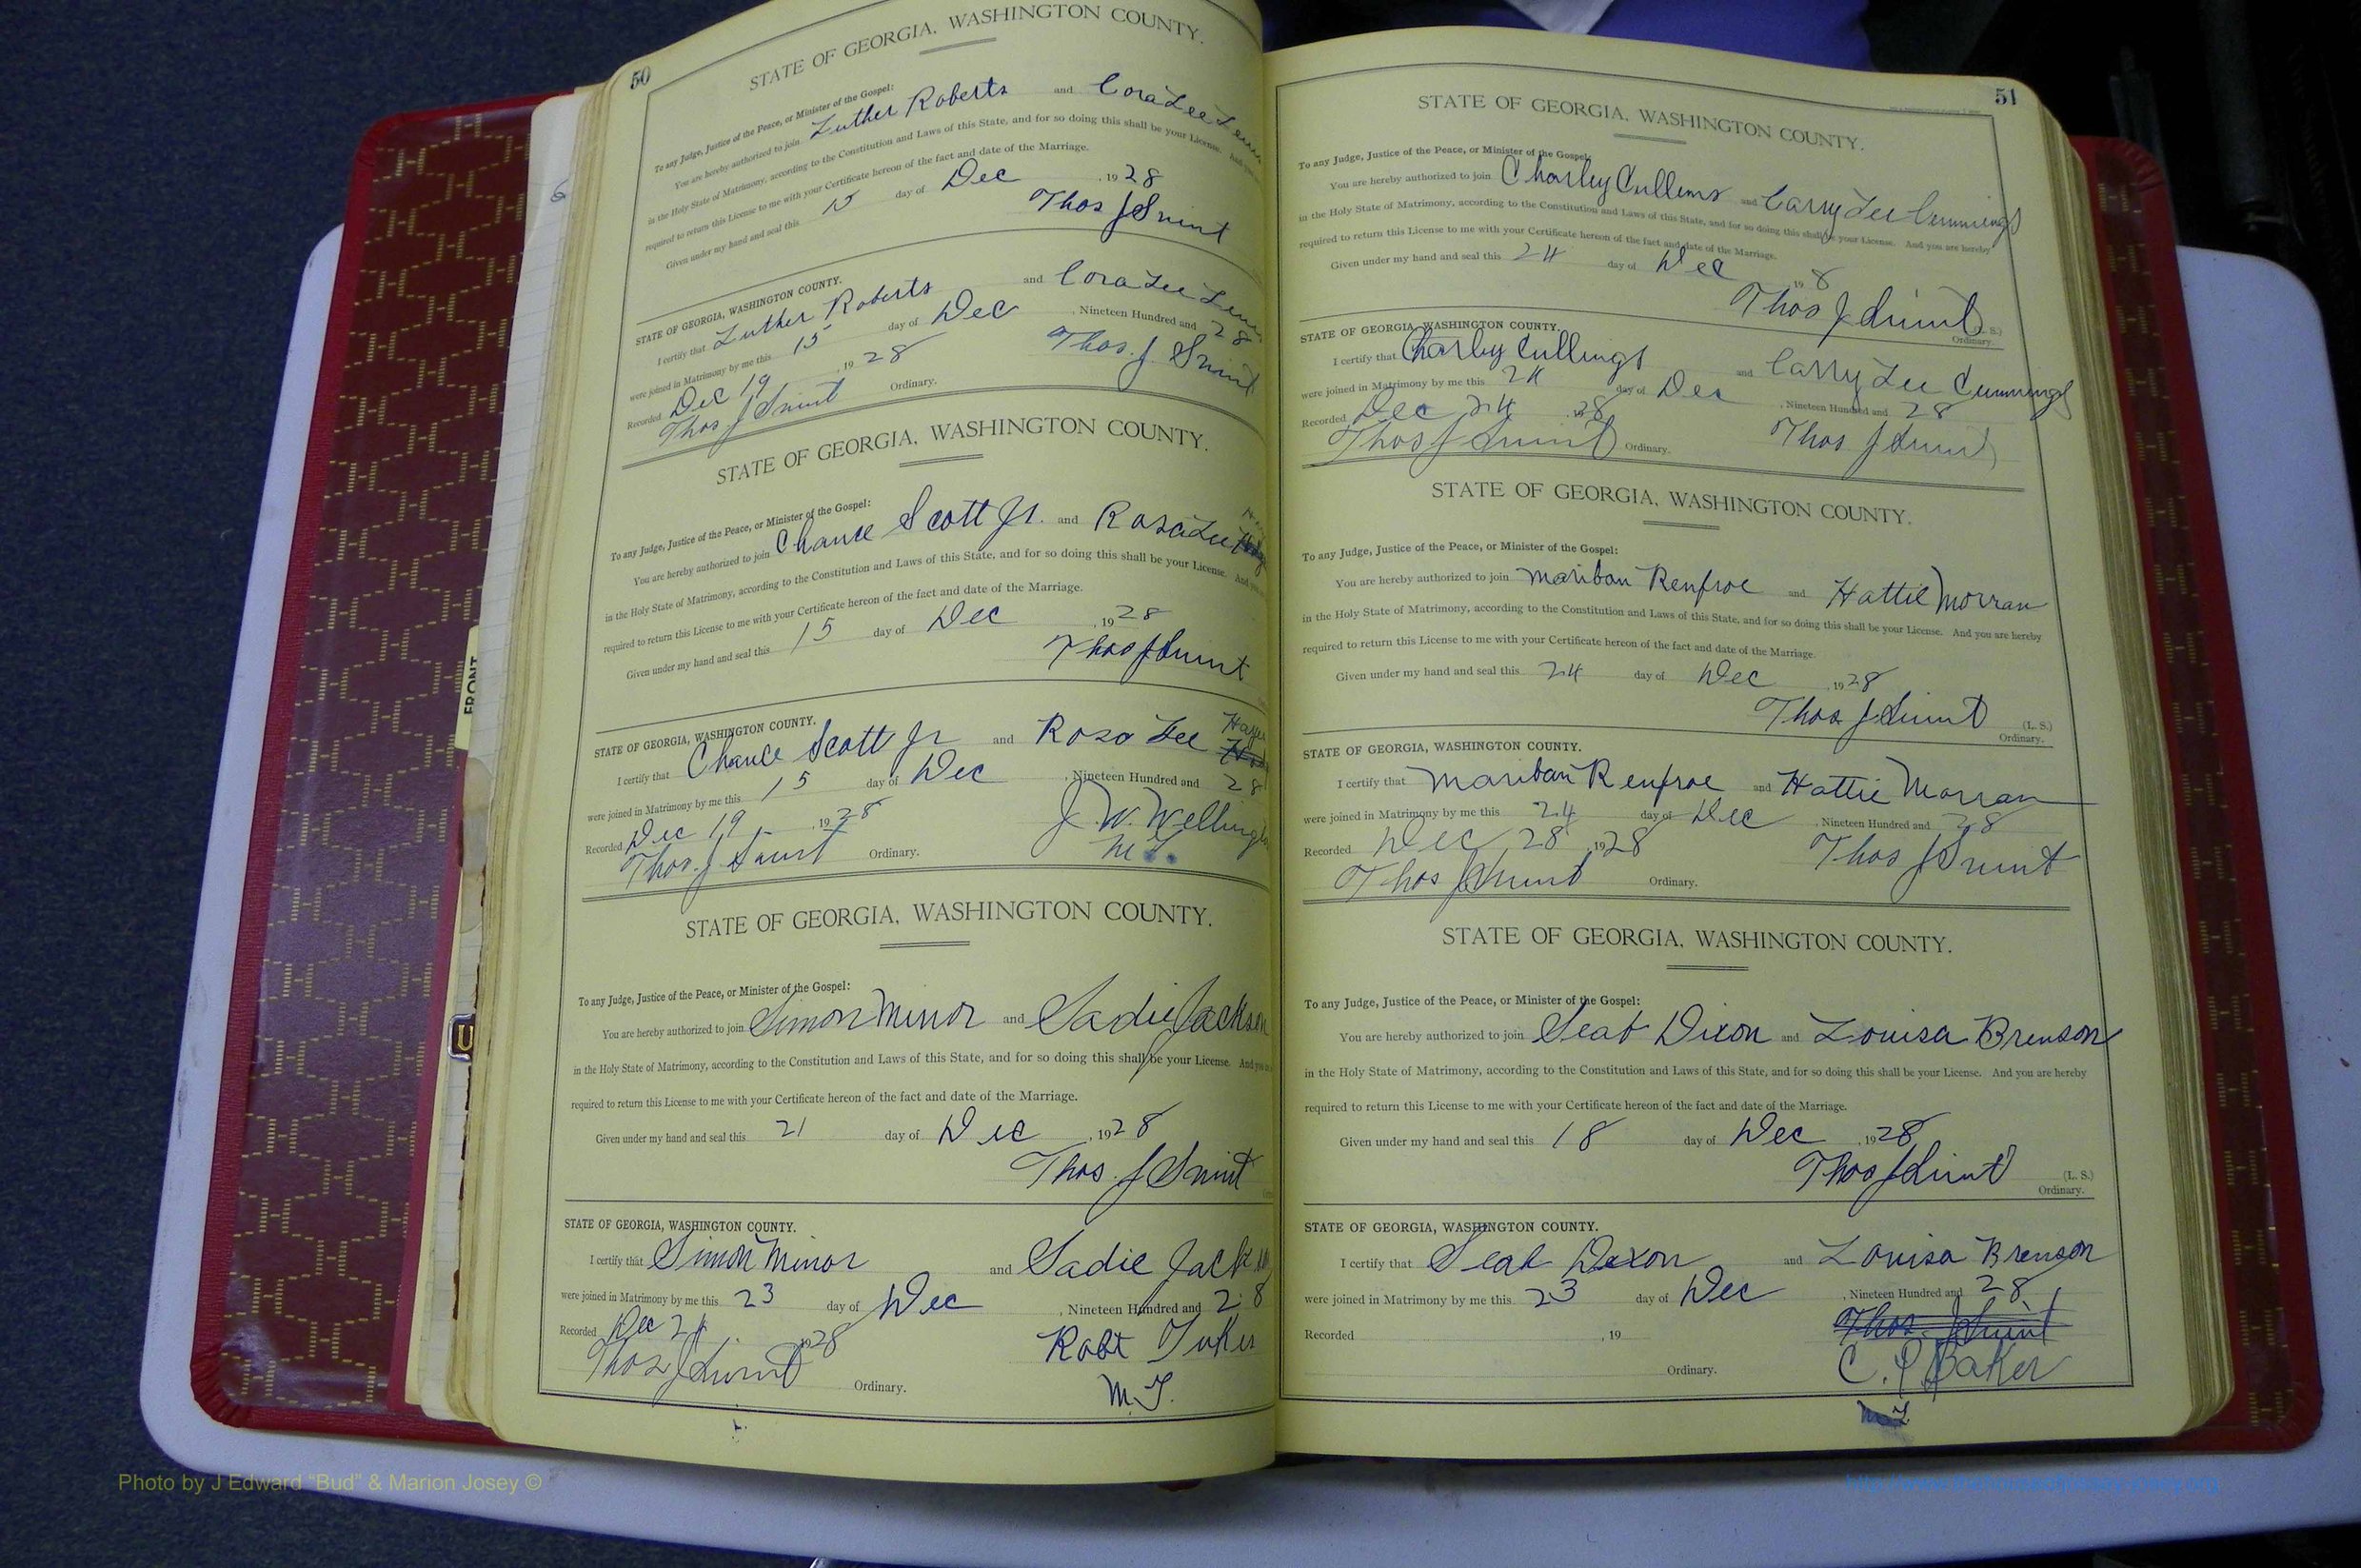 50
STATE OF GEORGIA, WASHINGTON COUNTY.
To any Judge, Justice of the Peace, or Minister of the Gospel:
You are hereby authorized to join Luther Roberts and Cora Lee
in the Holy State of Matrimony, according to the Constitution and Laws of this State, and for so doing this shall be your License. And
required to return this License to me with your Certificate hereon of the fact and date of the Marriage.
Given under my hand and seal this 15 day of Dec , 1928
Thos J Swint
STATE OF GEORGIA, WASHINGTON COUNTY.
I certify that Luther Roberts and Cora Lee
were joined in Matrimony by me this 15 day of Dec , Nineteen Hundred and 28
Recorded Dec 19 , 1928 Thos. J. Swint
Thos J Swint Ordinary.
STATE OF GEORGIA, WASHINGTON COUNTY.
To any Judge, Justice of the Peace, or Minister of the Gospel:
You are hereby authorized to join Chance Scott Jr. and Rosa Lee
in the Holy State of Matrimony, according to the Constitution and Laws of this State, and for so doing this shall be your License. And
required to return this License to me with your Certificate hereon of the fact and date of the Marriage.
Given under my hand and seal this 15 day of Dec , 1928
Thos J Swint
STATE OF GEORGIA, WASHINGTON COUNTY.
I certify that Chance Scott Jr and Rosa Lee
were joined in Matrimony by me this 15 day of Dec , Nineteen Hundred and 28
Recorded Dec 19 , 1928 J. W.
Thos. J Swint Ordinary. M
STATE OF GEORGIA, WASHINGTON COUNTY.
To any Judge, Justice of the Peace, or Minister of the Gospel:
You are hereby authorized to join Simon Minor and Sadie Jackson
in the Holy State of Matrimony, according to the Constitution and Laws of this State, and for so doing this shall be your License. And
required to return this License to me with your Certificate hereon of the fact and date of the Marriage.
Given under my hand and seal this 21 day of Dec , 1928
Thos. J Swint
STATE OF GEORGIA, WASHINGTON COUNTY.
I certify that Simon Minor and Sadie Jackson
were joined in Matrimony by me this 23 day of Dec , Nineteen Hundred and 28
Recorded Dec 24 1928 Robt
Thos J Swint Ordinary.
51
STATE OF GEORGIA, WASHINGTON COUNTY.
To any Judge, Justice of the Peace, or Minister of the Gospel:
You are hereby authorized to join Charley Cullens and Carry Lee Cummings
in the Holy State of Matrimony, according to the Constitution and Laws of this State, and for so doing this shall be your License. And you are hereby
required to return this License to me with your Certificate hereon of the fact and date of the Marriage.
Given under my hand and seal this 24 day of Dec , 19 8
Thos J Swint (L. S.)
Ordinary.
STATE OF GEORGIA, WASHINGTON COUNTY.
I certify that Charley Cullings and Carry Lee Cummings
were joined in Matrimony by me this 24 day of Dec , Nineteen Hundred and 28
Recorded Dec 24 , 1928 Thos J Swint
Thos J Swint Ordinary.
STATE OF GEORGIA, WASHINGTON COUNTY.
To any Judge, Justice of the Peace, or Minister of the Gospel:
You are hereby authorized to join Mariban Renfroe and Hattie Morran
in the Holy State of Matrimony, according to the Constitution and Laws of this State, and for so doing this shall be your License. And you are hereby
required to return this License to me with your Certificate hereon of the fact and date of the Marriage.
Given under my hand and seal this 24 day of Dec , 1928
Thos J Swint (L. S.)
Ordinary.
STATE OF GEORGIA, WASHINGTON COUNTY.
I certify that Mariban Renfroe and Hattie Morran
were joined in Matrimony by me this 24 day of Dec , Nineteen Hundred and 28
Recorded Dec 28 , 1928 Thos J Swint
Thos J Swint Ordinary.
STATE OF GEORGIA, WASHINGTON COUNTY.
To any Judge, Justice of the Peace, or Minister of the Gospel:
You are hereby authorized to join Seab Dixon and Louisa Brenson
in the Holy State of Matrimony, according to the Constitution and Laws of this State, and for so doing this shall be your License. And you are hereby
required to return this License to me with your Certificate hereon of the fact and date of the Marriage.
Given under my hand and seal this 18 day of Dec , 1928
Thos J Swint (L. S.)
Ordinary.
STATE OF GEORGIA, WASHINGTON COUNTY.
I certify that Seab Dixon and Louisa Brenson
were joined in Matrimony by me this 23 day of Dec , Nineteen Hundred and 28
Recorded , 19 Thos. J Swint
Ordinary. C. P Baker
FRONT
6
Photo by J Edward "Bud" & Marion Josey ©